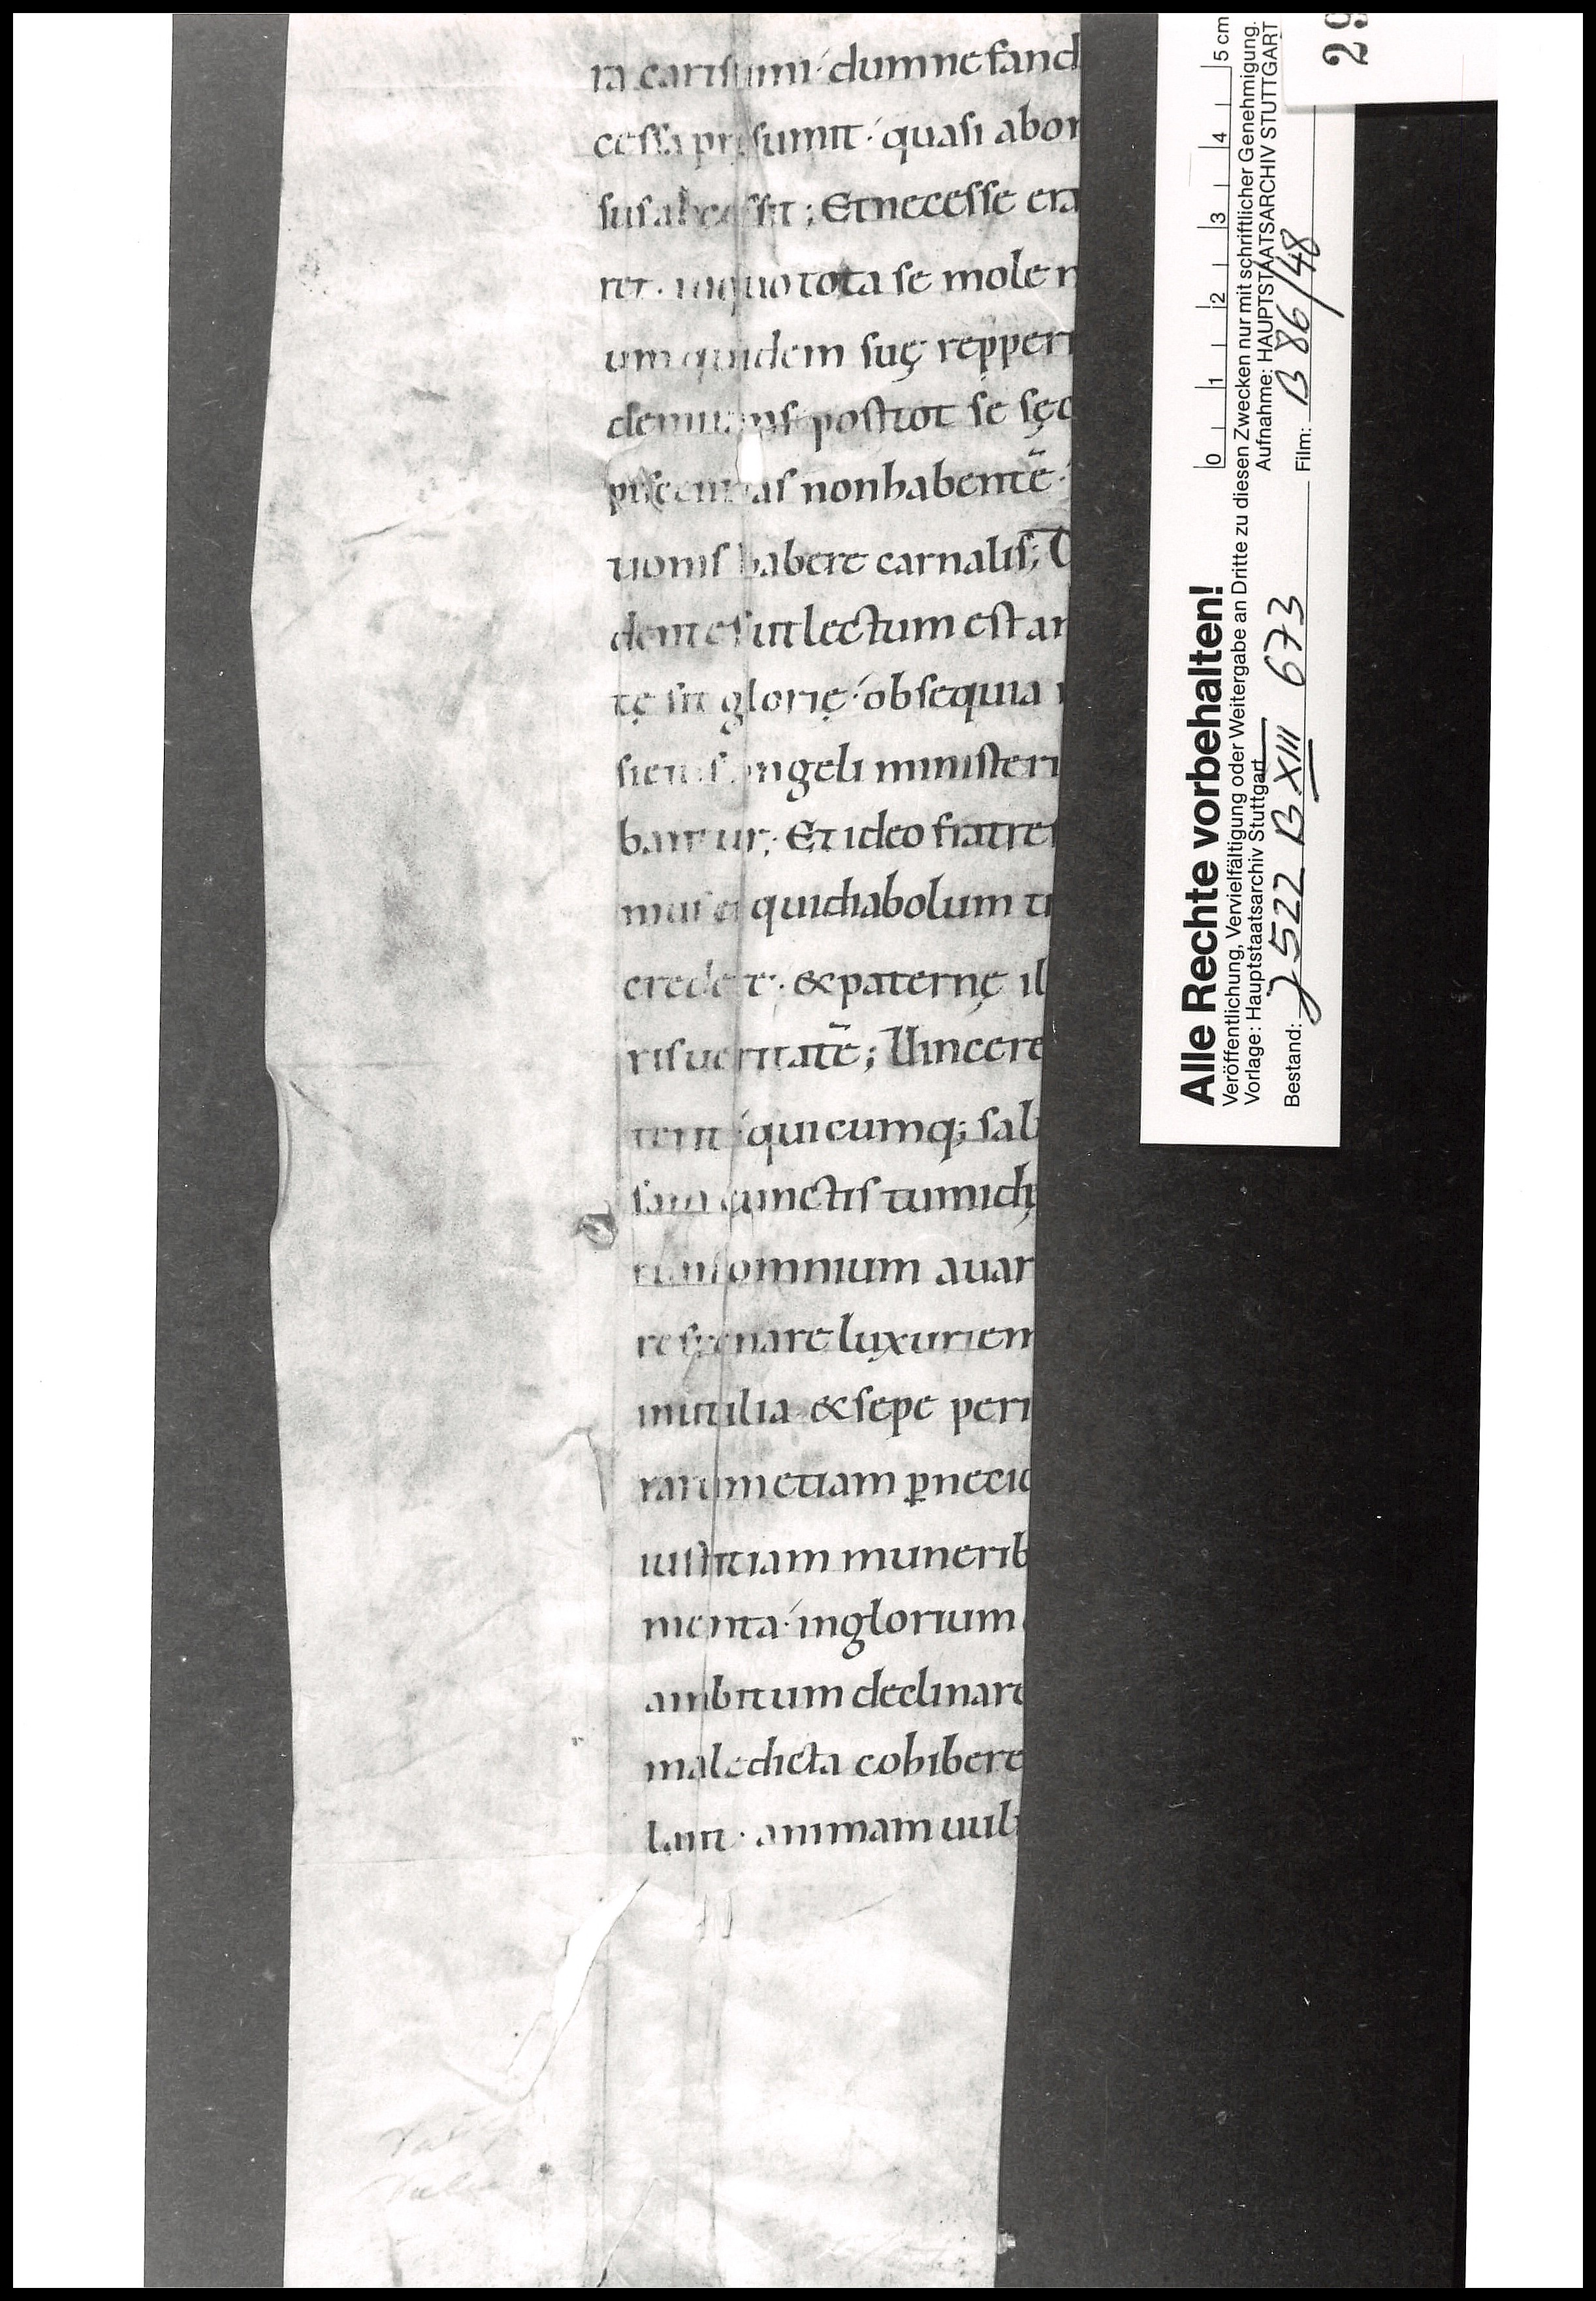 ra carissimi· dum nefand
cessa presumit· quasi abor
sus abscessit; Et necesse era
ret· inquo tota se mole r
um quidem suę repperi
demus post tot se sęc
piscentias non habentē·
tionis habere carnalis; D
dentes sit lectum est an
tę sit glorię· obsequia
sicut angeli ministeri
bantur; Et ideo fratres
mus ei qui diabolum
crederet· & paternę il
ris ueritatē; Uincere
terit· quicumq; sal
sam cunctis tumid
omnium auar
refrenare luxuriem
inutilia & sepe peri
rarum etiam ꝑnecio
iustitiam munerib
menta· inglorium
ambitum declinare
maledicta cohibere
lant· animam uul
29
0 1 2 3 4 5 cm
Alle Rechte vorbehalten!
Veröffentlichung, Vervielfältigung oder Weitergabe an Dritte zu diesen Zwecken nur mit schriftlicher Genehmigung.
Vorlage: Hauptstaatsarchiv Stuttgart Aufnahme: HAUPTSTAATSARCHIV STUTTGART
Bestand: J 522 B XIII 673 Film: B 86/48